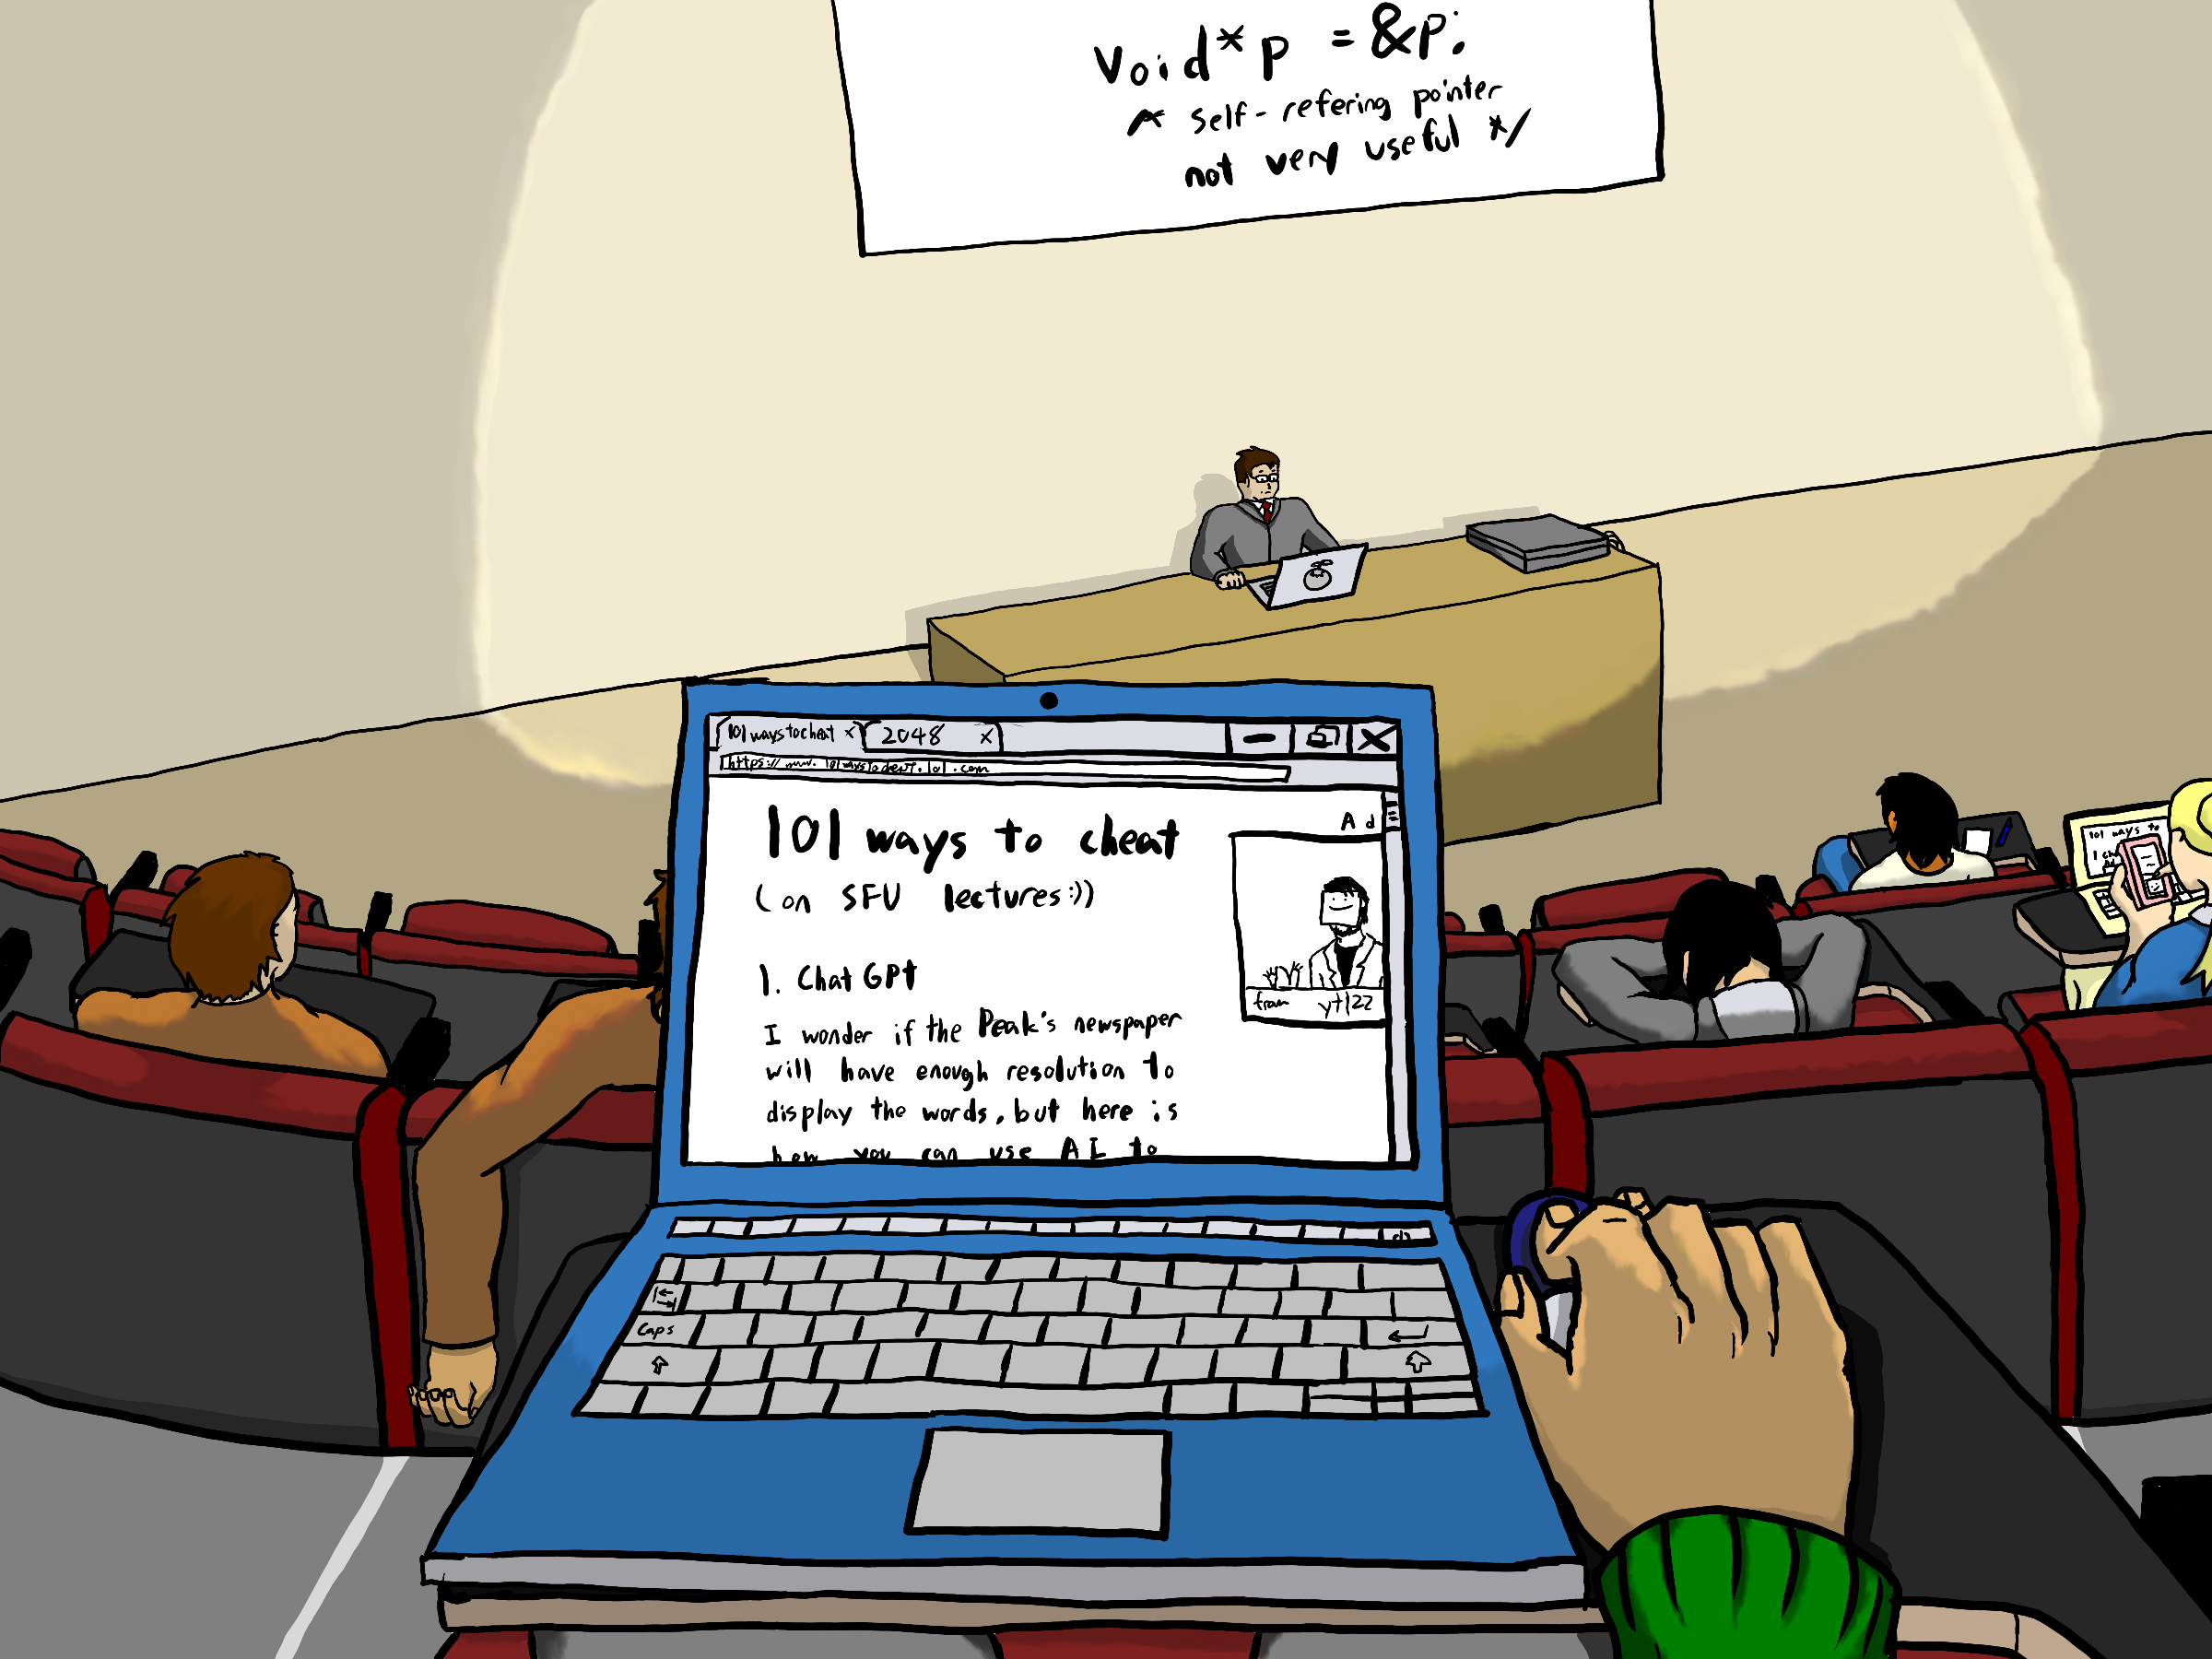 Void* p = &p;
/* self-refering pointer
not very useful */
101 ways to cheat x
2048 x
101 ways to cheat
(on SFU lectures:))
1. Chat GPt
I wonder if the Peak's newspaper
will have enough resolution to
display the words, but here is
how you can use AI to
Ad
from yt122
101 ways to
Caps